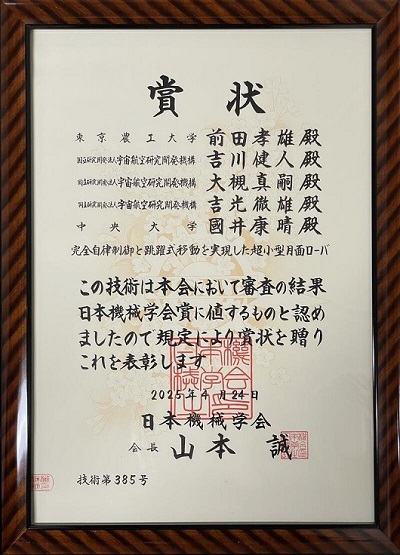 賞状
東京農工大学 前田孝雄殿
国立研究開発法人宇宙航空研究開発機構 吉川健人殿
国立研究開発法人宇宙航空研究開発機構 大槻真嗣殿
国立研究開発法人宇宙航空研究開発機構 吉光徹雄殿
中央大学 國井康晴殿
完全自律制御と跳躍式移動を実現した超小型月面ローバ
この技術は本会において審査の結果
日本機械学会賞に値するものと認め
ましたので規定により賞状を贈り
これを表彰します
2025年4月24日
日本機械学会
会長 山本誠
技術第385号